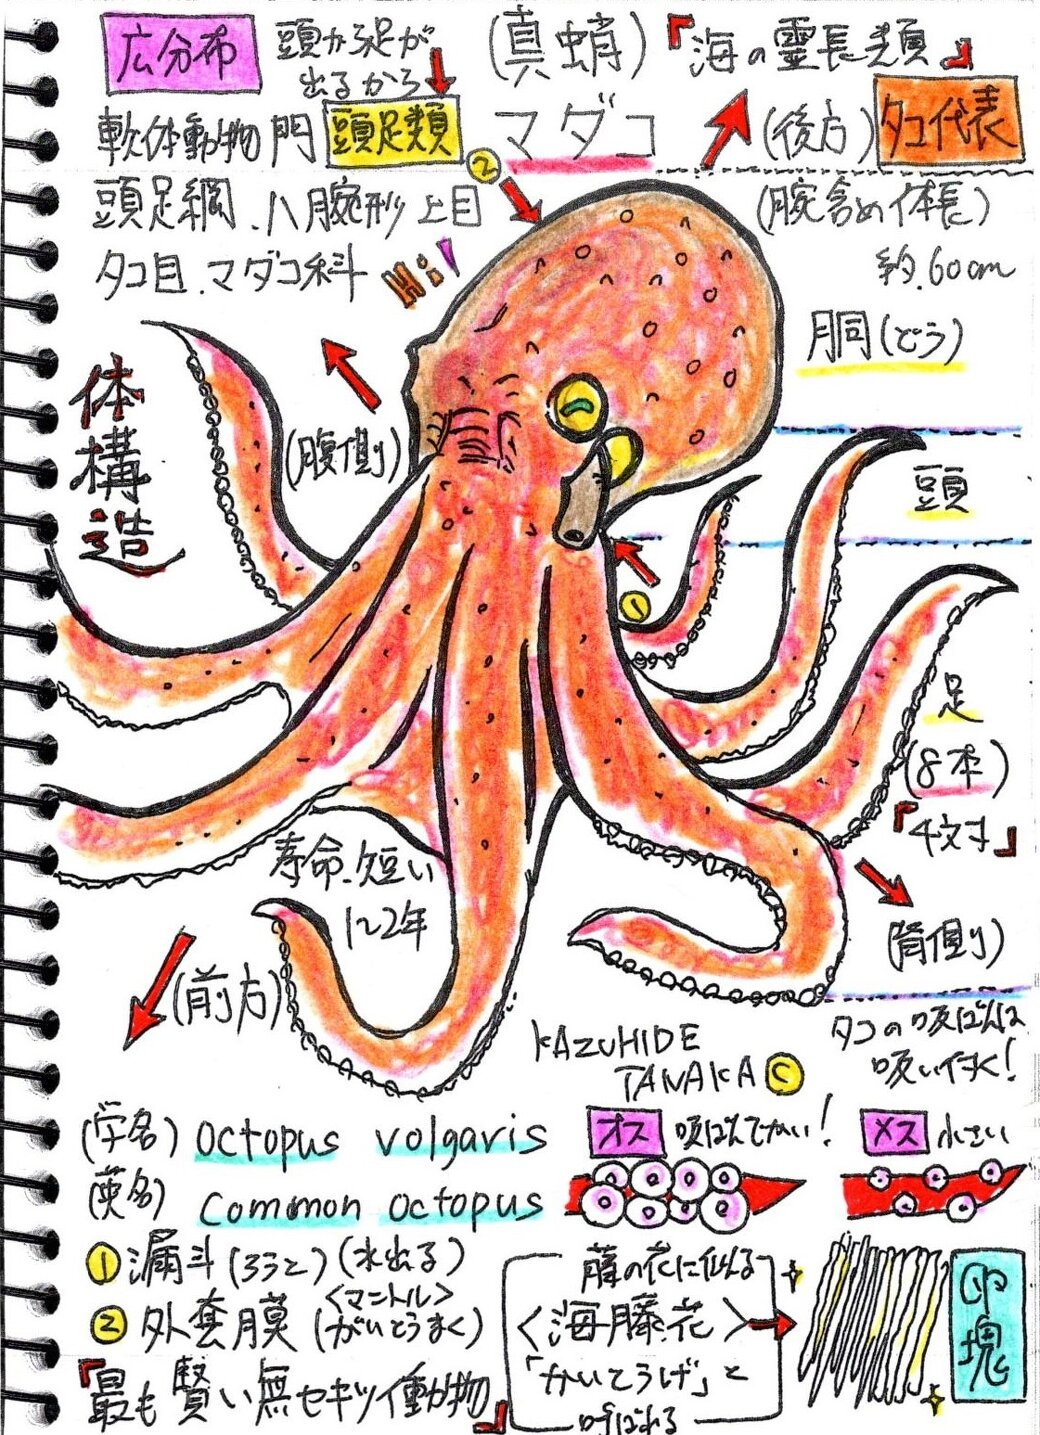 広分布
頭から足が
出るから
(真蛸)
『海の霊長類』
軟体動物門
頭足類
マダコ
(後方)
タコ代表
②
頭足綱.八腕形上目
タコ目.マダコ科
Hi!
(腕含め体長)
約.60cm
胴(どう)
体構造
(腹側)
頭
①
足
(8本)
『4対』
寿命.短い
1~2年
(背側)
(前方)
KAZUHIDE
TANAKA C
タコの吸ばんは
吸い付く!
(学名) Octopus volgaris
(英名) Common octopus
オス 吸ばんでかい!
メス 小さい
①漏斗(ろうと)(水出る)
②外套膜(がいとうまく)
<マントル>
『最も賢い無セキツイ動物』
藤の花に似る
<海藤花>
「かいとうげ」と
呼ばれる
卵塊